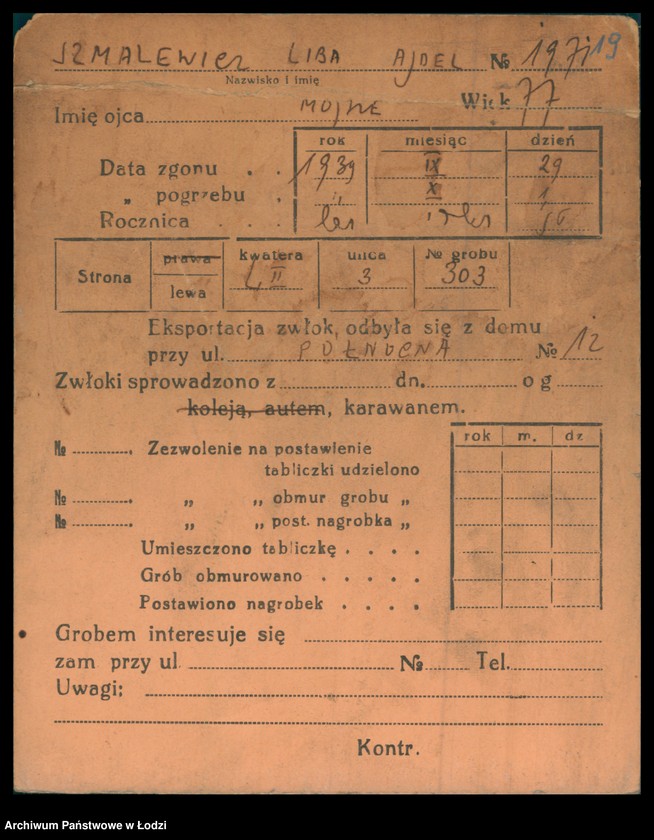 SZMALEWICZ LIBA AJDEL № 1971 19
Nazwisko i imię
Imię ojca MOJNE Wiek 77
rok miesiąc dzień
Data zgonu . . 1939 IX 29
„ pogrzebu . „ X 1
Rocznica . . .
Strona prawa lewa kwatera L II ulica 3 № grobu 303
Eksportacja zwłok, odbyła się z domu
przy ul. PÓŁNOCNA № 12
Zwłoki sprowadzono z dn. o g
koleją, autem, karawanem.
rok m. dz
№ . Zezwolenie na postawienie
tabliczki udzielono
№ . „ „ obmur grobu „
№ . „ „ post. nagrobka „
Umieszczono tabliczkę . . . .
Grób obmurowano . . . . .
Postawiono nagrobek . . . .
Grobem interesuje się
zam przy ul. № Tel.
Uwagi:
Kontr.
Archiwum Państwowe w Łodzi